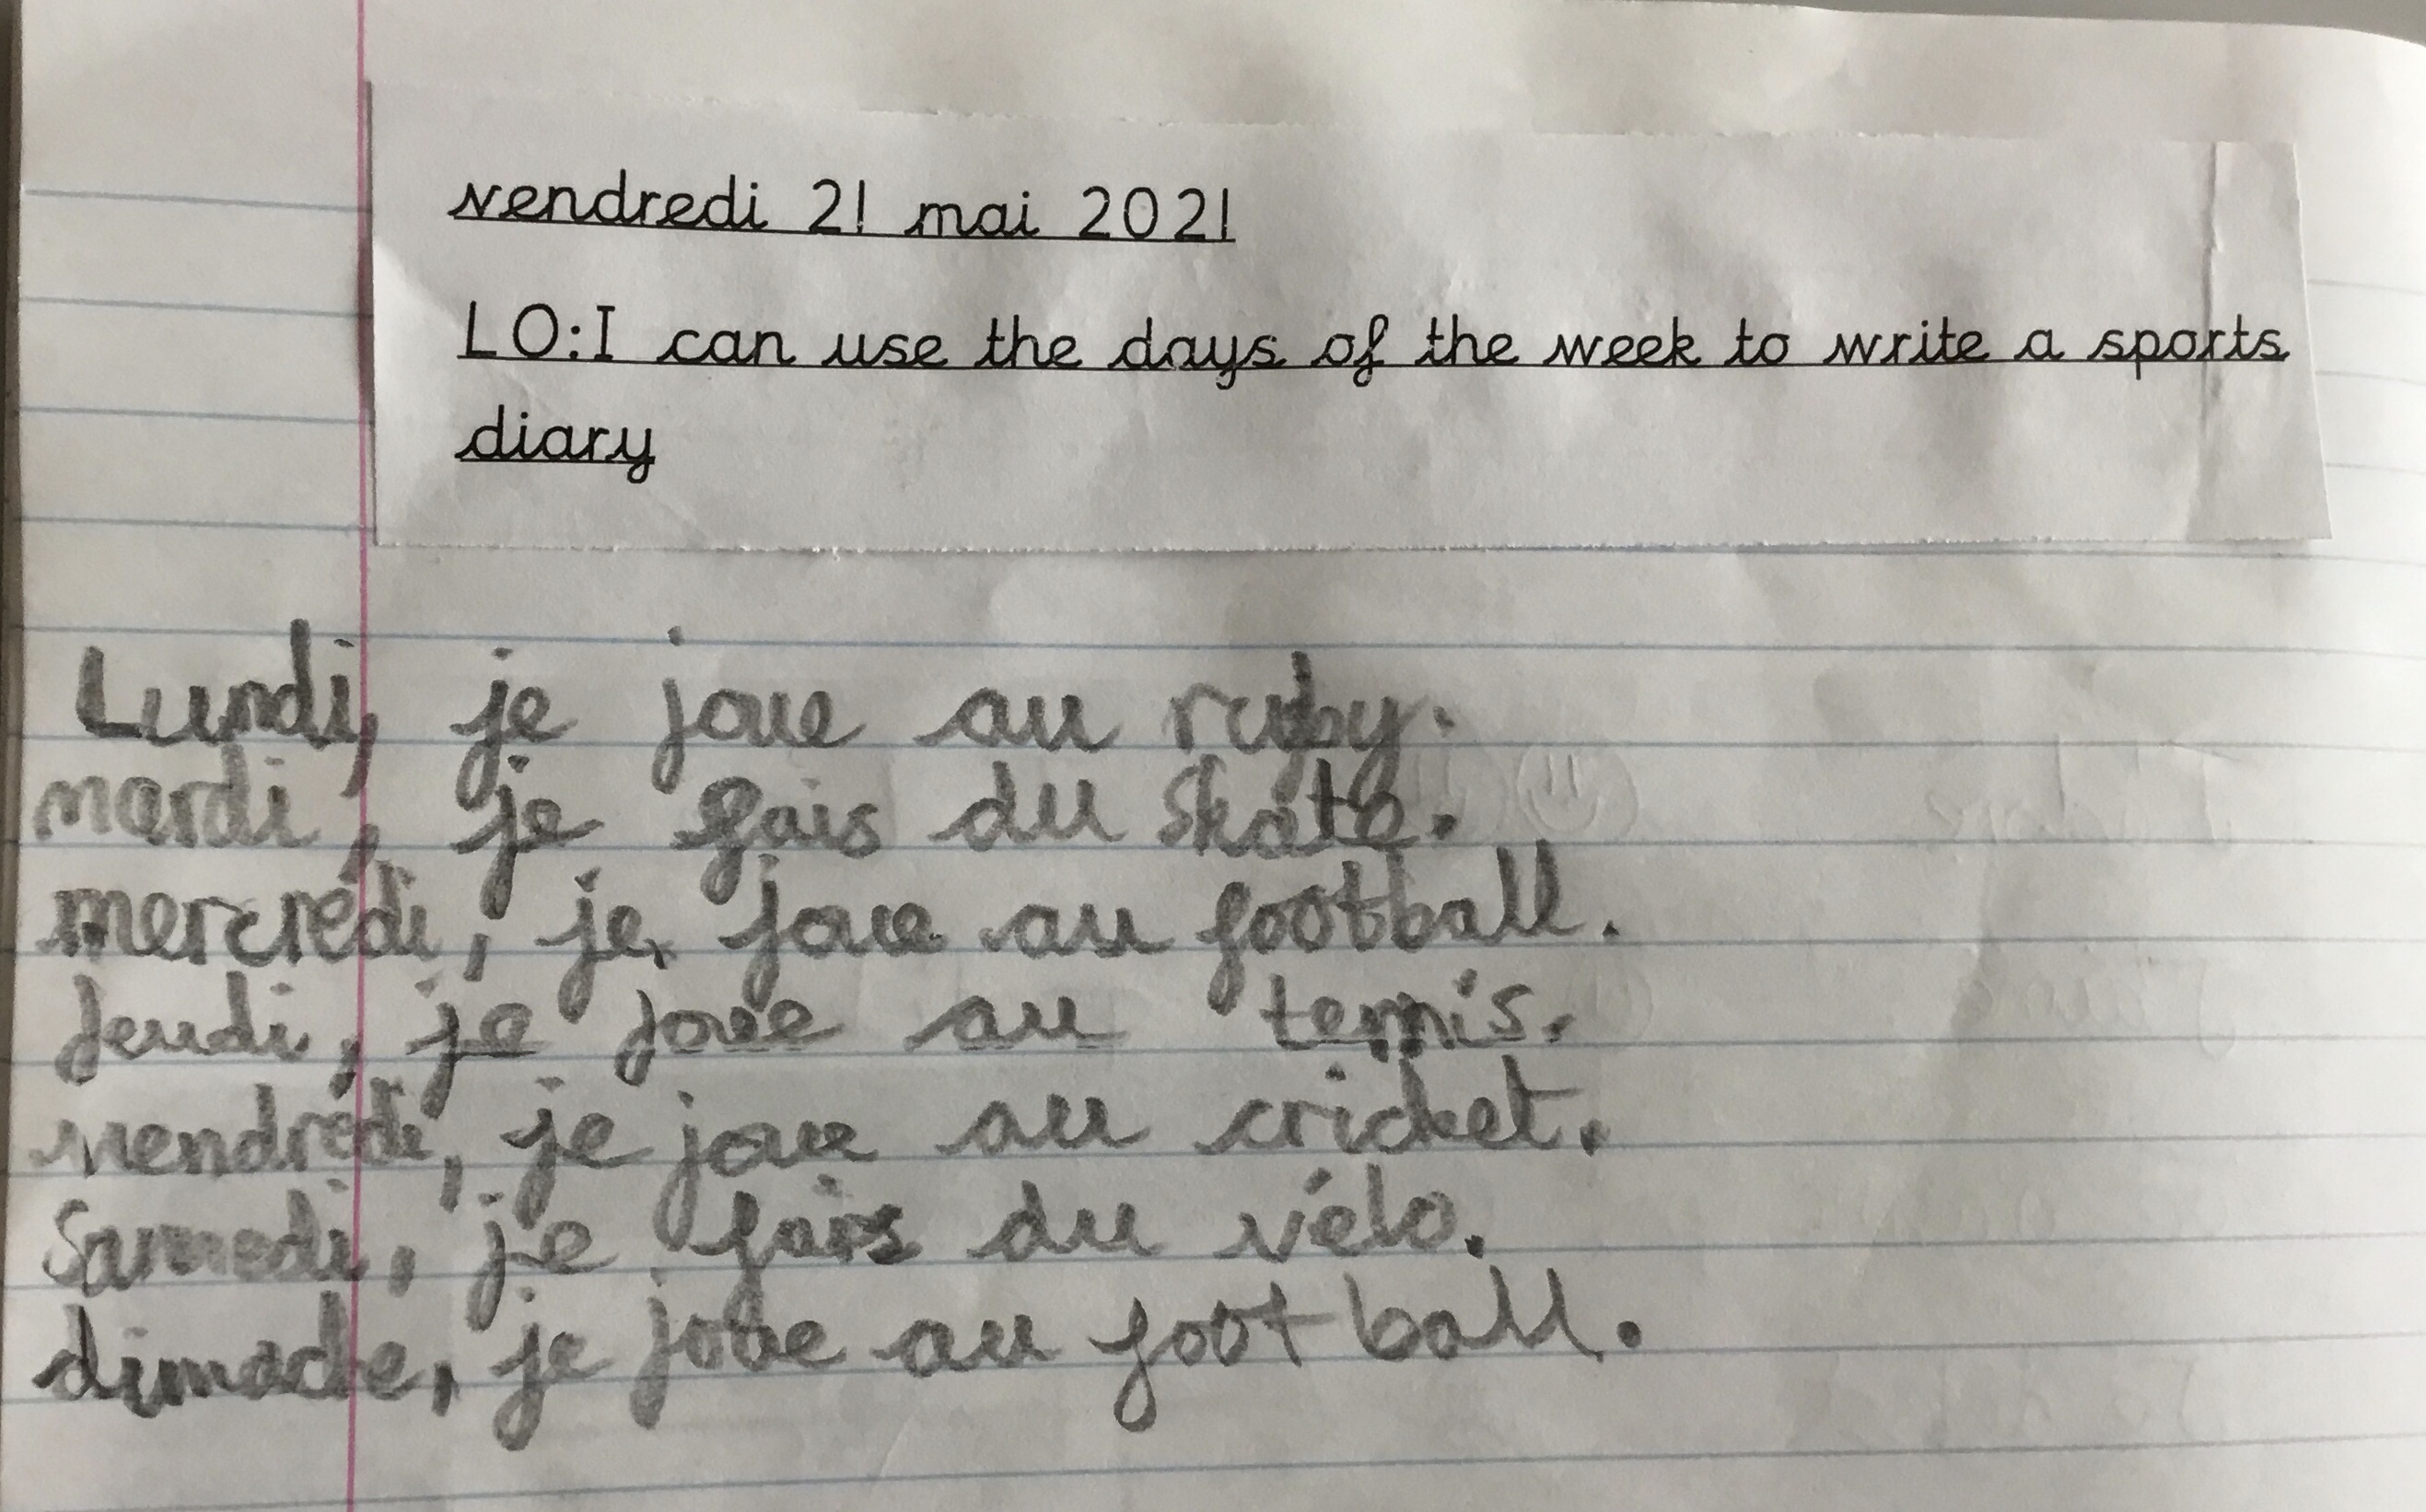 vendredi 21 mai 2021
LO:I can use the days of the week to write a sports
diary
Lundi, je joue au ruby.
mardi, je fais du skate.
mercrédi, je joue au football.
Jeudi, je joue au tennis.
vendrédi, je joue au cricket.
Samedi, je fais du vélo.
dimache, je joue au foot ball.